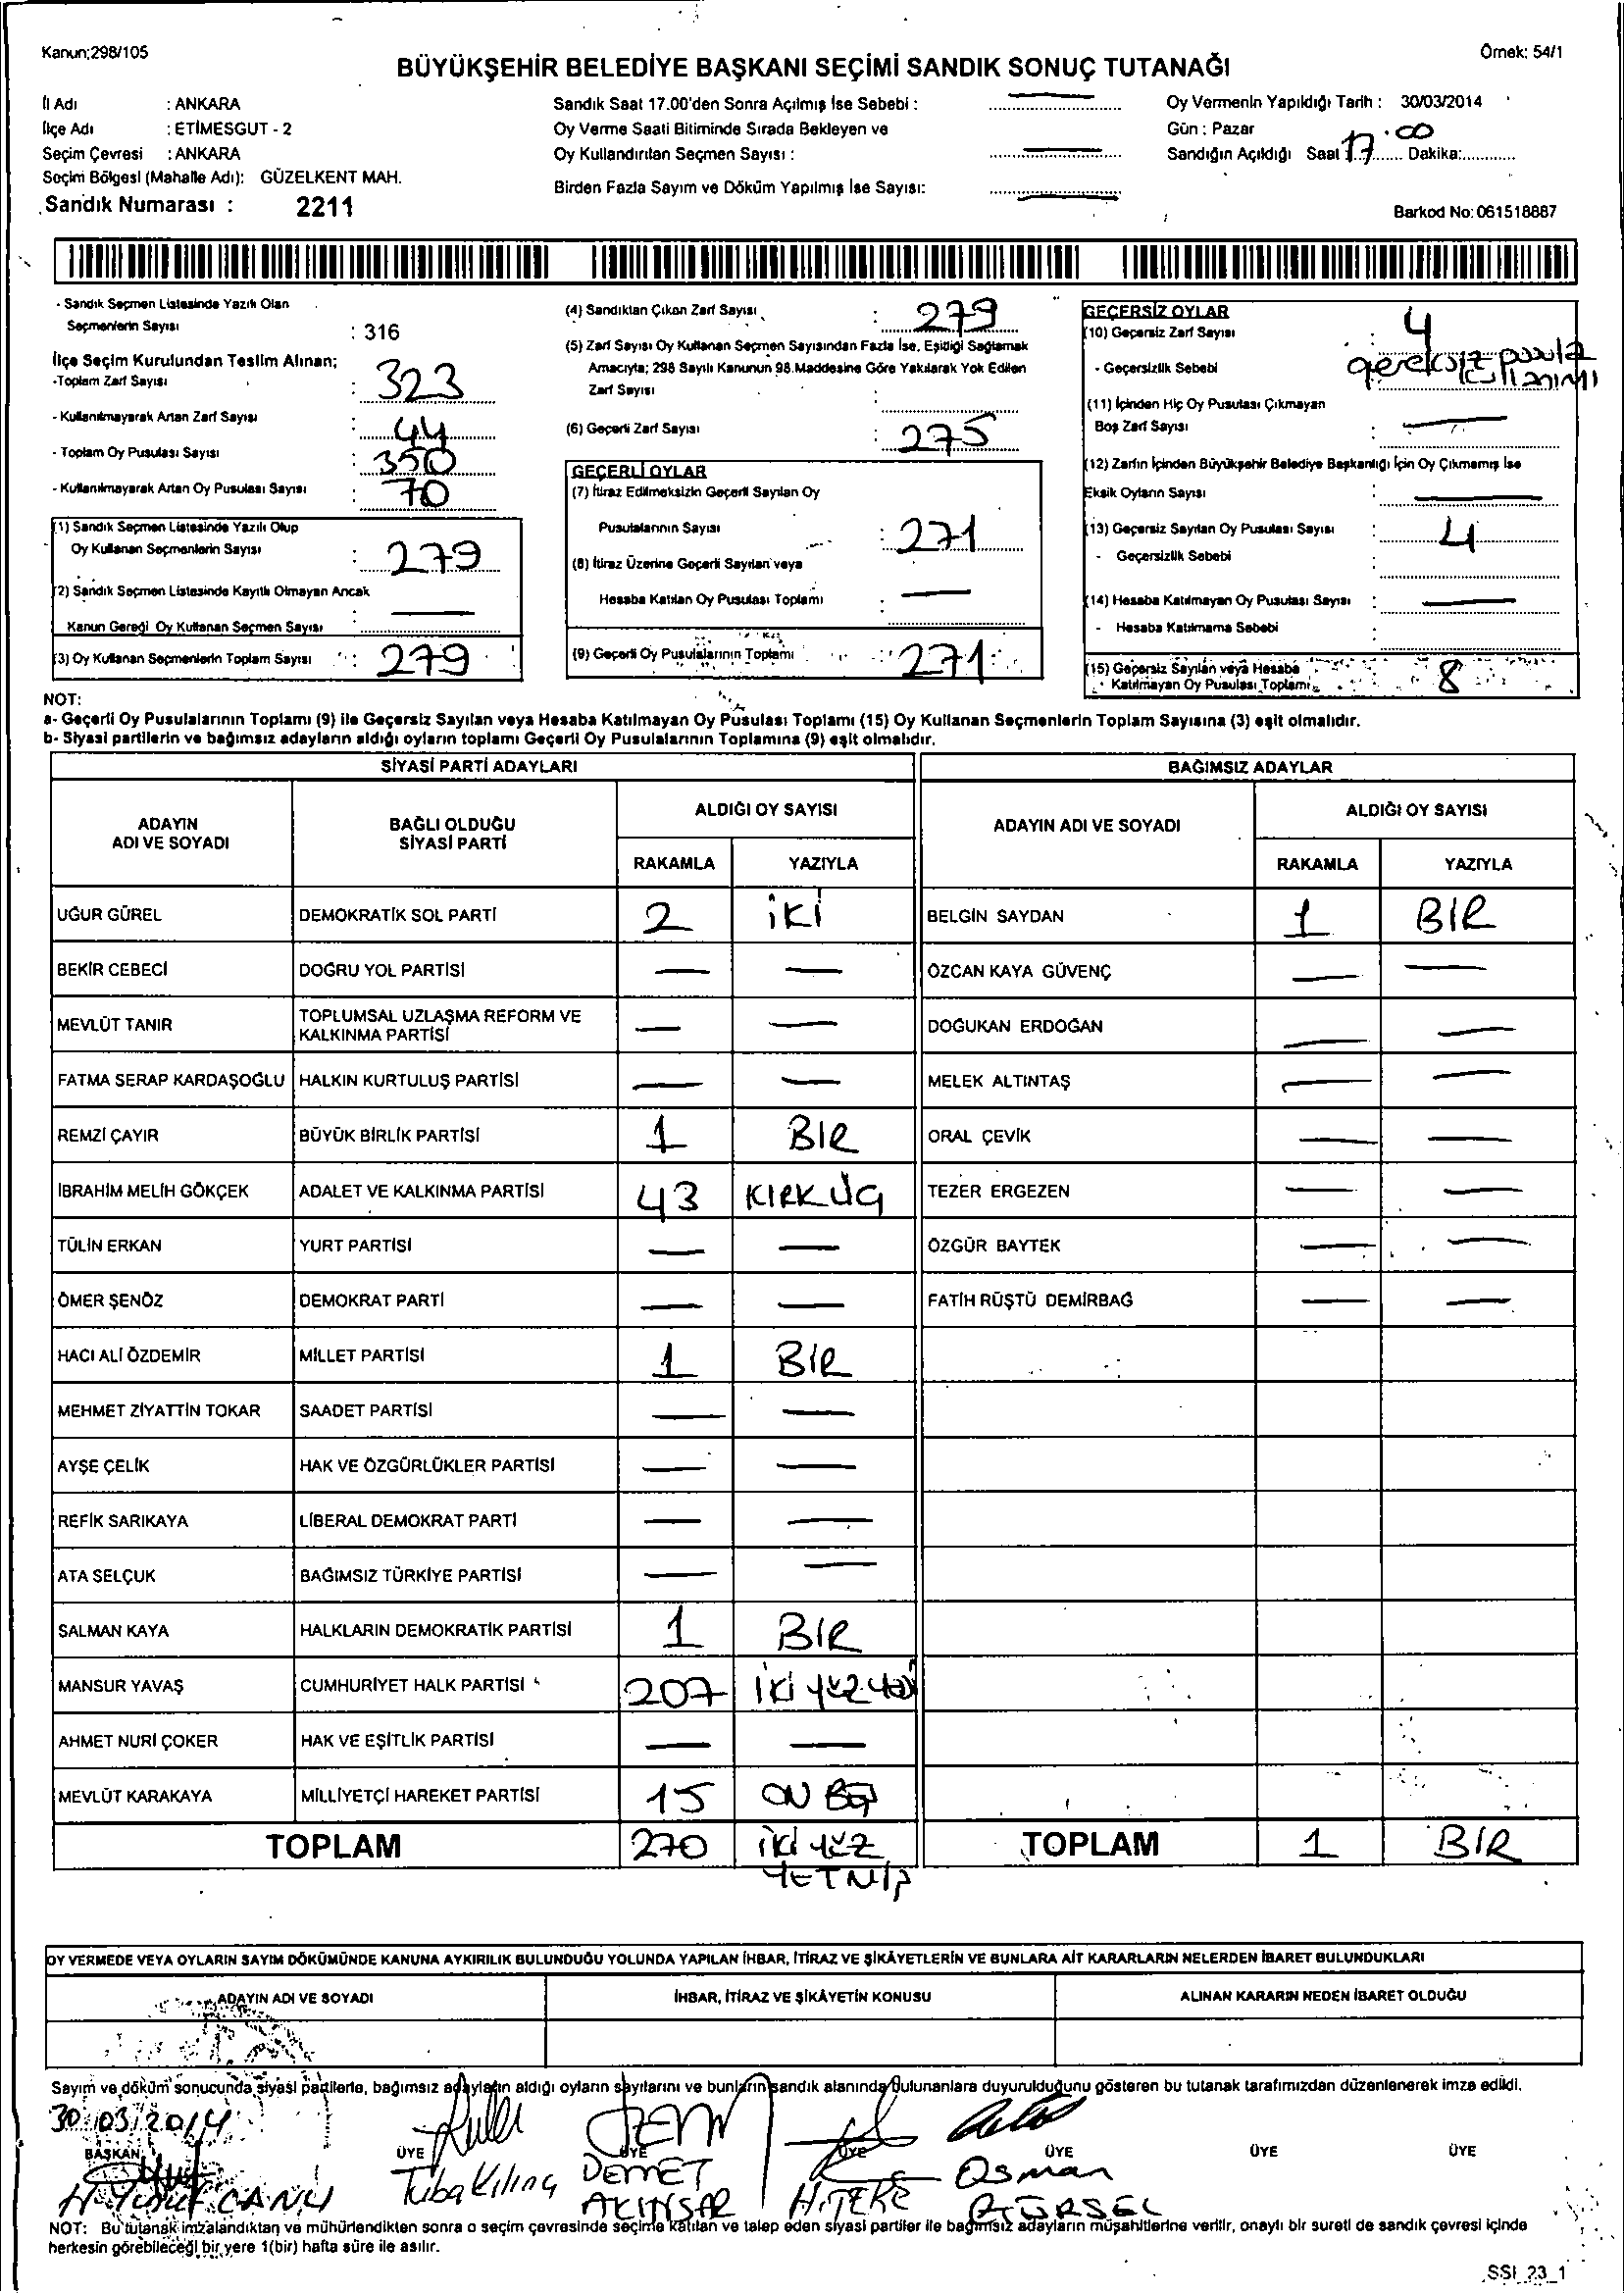 Kanun;298/105
Örnek: 54/1
BÜYÜKŞEHİR BELEDİYE BAŞKANI SEÇİMİ SANDIK SONUÇ TUTANAĞI
İl Adı : ANKARA
İlçe Adı : ETİMESGUT - 2
Seçim Çevresi : ANKARA
Seçim Bölgesi (Mahalle Adı): GÜZELKENT MAH.
Sandık Numarası : 2211
Sandık Saat 17.00'den Sonra Açılmış İse Sebebi : —
Oy Verme Saati Bitiminde Sırada Bekleyen ve
Oy Kullandırılan Seçmen Sayısı : —
Birden Fazla Sayım ve Döküm Yapılmış İse Sayısı: —
Oy Vermenin Yapıldığı Tarih : 30/03/2014
Gün : Pazar
Sandığın Açıldığı Saat 17.00 Dakika:............
Barkod No: 061518887
- Sandık Seçmen Listesinde Yazılı Olan
Seçmenlerin Sayısı : 316
İlçe Seçim Kurulundan Teslim Alınan;
-Toplam Zarf Sayısı : 323
- Kullanılmayarak Artan Zarf Sayısı : 44
- Toplam Oy Pusulası Sayısı : 350
- Kullanılmayarak Artan Oy Pusulası Sayısı : 70
(1) Sandık Seçmen Listesinde Yazılı Olup
Oy Kullanan Seçmenlerin Sayısı : 279
(2) Sandık Seçmen Listesinde Kayıtlı Olmayan Ancak
Kanun Gereği Oy Kullanan Seçmen Sayısı : —
(3) Oy Kullanan Seçmenlerin Toplam Sayısı : 279
(4) Sandıktan Çıkan Zarf Sayısı : 279
(5) Zarf Sayısı Oy Kullanan Seçmen Sayısından Fazla İse, Eşitliği Sağlamak
Amacıyla; 298 Sayılı Kanunun 98.Maddesine Göre Yakılarak Yok Edilen
Zarf Sayısı :
(6) Geçerli Zarf Sayısı : 275
GEÇERLİ OYLAR
(7) İtiraz Edilmeksizin Geçerli Sayılan Oy
Pusulalarının Sayısı : 271
(8) İtiraz Üzerine Geçerli Sayılan veya
Hesaba Katılan Oy Pusulası Toplamı : —
(9) Geçerli Oy Pusulalarının Toplamı : 271
GEÇERSİZ OYLAR
(10) Geçersiz Zarf Sayısı : 4
- Geçersizlik Sebebi : gereksiz pusula
kullanımı
(11) İçinden Hiç Oy Pusulası Çıkmayan
Boş Zarf Sayısı : —
(12) Zarfın İçinden Büyükşehir Belediye Başkanlığı İçin Oy Çıkmamış İse
Eksik Oyların Sayısı : —
(13) Geçersiz Sayılan Oy Pusulası Sayısı : 4
- Geçersizlik Sebebi
(14) Hesaba Katılmayan Oy Pusulası Sayısı : —
- Hesaba Katılmama Sebebi :
(15) Geçersiz Sayılan veya Hesaba
Katılmayan Oy Pusulası Toplamı : 8
NOT:
a- Geçerli Oy Pusulalarının Toplamı (9) ile Geçersiz Sayılan veya Hesaba Katılmayan Oy Pusulası Toplamı (15) Oy Kullanan Seçmenlerin Toplam Sayısına (3) eşit olmalıdır.
b- Siyasi partilerin ve bağımsız adayların aldığı oyların toplamı Geçerli Oy Pusulalarının Toplamına (9) eşit olmalıdır.
SİYASİ PARTİ ADAYLARI
ADAYIN ADI VE SOYADI | BAĞLI OLDUĞU SİYASİ PARTİ | ALDIĞI OY SAYISI
RAKAMLA | YAZIYLA
UĞUR GÜREL | DEMOKRATİK SOL PARTİ | 2 | İKİ
BEKİR CEBECİ | DOĞRU YOL PARTİSİ | — | —
MEVLÜT TANIR | TOPLUMSAL UZLAŞMA REFORM VE KALKINMA PARTİSİ | — | —
FATMA SERAP KARDAŞOĞLU | HALKIN KURTULUŞ PARTİSİ | — | —
REMZİ ÇAYIR | BÜYÜK BİRLİK PARTİSİ | 1 | BİR
İBRAHİM MELİH GÖKÇEK | ADALET VE KALKINMA PARTİSİ | 43 | KIRK ÜÇ
TÜLİN ERKAN | YURT PARTİSİ | — | —
ÖMER ŞENÖZ | DEMOKRAT PARTİ | — | —
HACI ALİ ÖZDEMİR | MİLLET PARTİSİ | 1 | BİR
MEHMET ZİYATTİN TOKAR | SAADET PARTİSİ | — | —
AYŞE ÇELİK | HAK VE ÖZGÜRLÜKLER PARTİSİ | — | —
REFİK SARIKAYA | LİBERAL DEMOKRAT PARTİ | — | —
ATA SELÇUK | BAĞIMSIZ TÜRKİYE PARTİSİ | — | —
SALMAN KAYA | HALKLARIN DEMOKRATİK PARTİSİ | 1 | BİR
MANSUR YAVAŞ | CUMHURİYET HALK PARTİSİ | 207 | İKİ YÜZ YEDİ
AHMET NURİ ÇOKER | HAK VE EŞİTLİK PARTİSİ | — | —
MEVLÜT KARAKAYA | MİLLİYETÇİ HAREKET PARTİSİ | 15 | ON BEŞ
TOPLAM | 270 | İKİ YÜZ
YETMİŞ
BAĞIMSIZ ADAYLAR
ADAYIN ADI VE SOYADI | ALDIĞI OY SAYISI
RAKAMLA | YAZIYLA
BELGİN SAYDAN | 1 | BİR
ÖZCAN KAYA GÜVENÇ | — | —
DOĞUKAN ERDOĞAN | — | —
MELEK ALTINTAŞ | — | —
ORAL ÇEVİK | — | —
TEZER ERGEZEN | — | —
ÖZGÜR BAYTEK | — | —
FATİH RÜŞTÜ DEMİRBAĞ | — | —
TOPLAM | 1 | BİR
OY VERMEDE VEYA OYLARIN SAYIM DÖKÜMÜNDE KANUNA AYKIRILIK BULUNDUĞU YOLUNDA YAPILAN İHBAR, İTİRAZ VE ŞİKÂYETLERİN VE BUNLARA AİT KARARLARIN NELERDEN İBARET BULUNDUKLARI
ADAYIN ADI VE SOYADI | İHBAR, İTİRAZ VE ŞİKÂYETİN KONUSU | ALINAN KARARIN NEDEN İBARET OLDUĞU
Sayım ve döküm sonucunda siyasi partilerle, bağımsız adayların aldığı oyların sayılarını ve bunların sandık alanında bulunanlara duyurulduğunu gösteren bu tutanak tarafımızdan düzenlenerek imza edildi.
30/03/2014
BAŞKAN ÜYE ÜYE ÜYE ÜYE ÜYE ÜYE
H. Yusuf CANLI
Tuba Kılınç
DEMET
AKINSAR
H. TEKE
Osman
GÜRSEL
NOT: Bu tutanak imzalandıktan ve mühürlendikten sonra o seçim çevresinde seçime katılan ve talep eden siyasi partiler ile bağımsız adayların müşahitlerine verilir, onaylı bir sureti de sandık çevresi içinde
herkesin görebileceği bir yere 1(bir) hafta süre ile asılır.
SSI_23_1